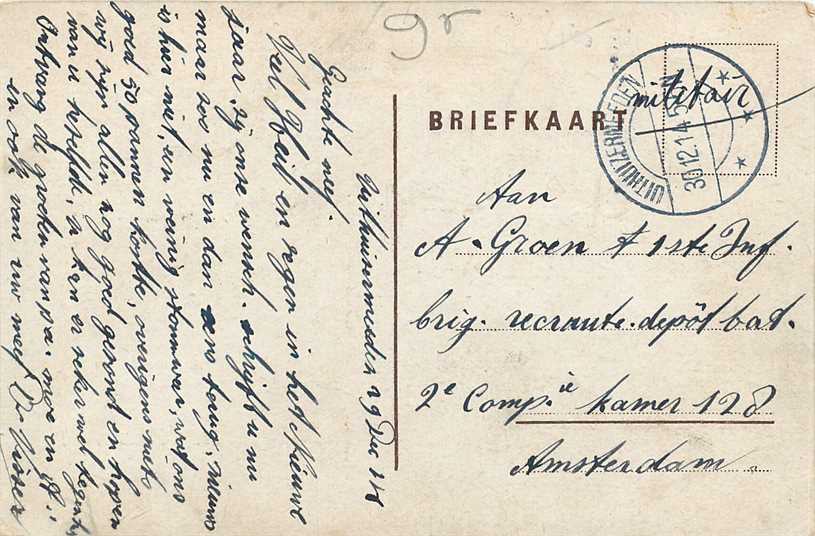 9r
BRIEFKAART
militair
UITHUIZERMEEDEN
30.12.14.5
Aan
A. Groen 1ste Inf.
brig. recruute. depôt bat.
2e Comp.ie kamer 128
Amsterdam
Uithuizermeeden 29 Dec
Geachte neef.
Veel Heil en zegen in het Nieuwe
jaar, zij onze wensch. schrijft u nu
maar zoo nu en dan eens terug, nieuws
is hier niet, een weinig stormweer, wat ons
goed 50 pannen kostte, overigens niets
wij zijn allen nog goed gezond en hopen
van u hetzelfde, ge kan er zeker wel tegen
Ontvang de groeten van pa. moe en
en ook van uw neef D. Visser